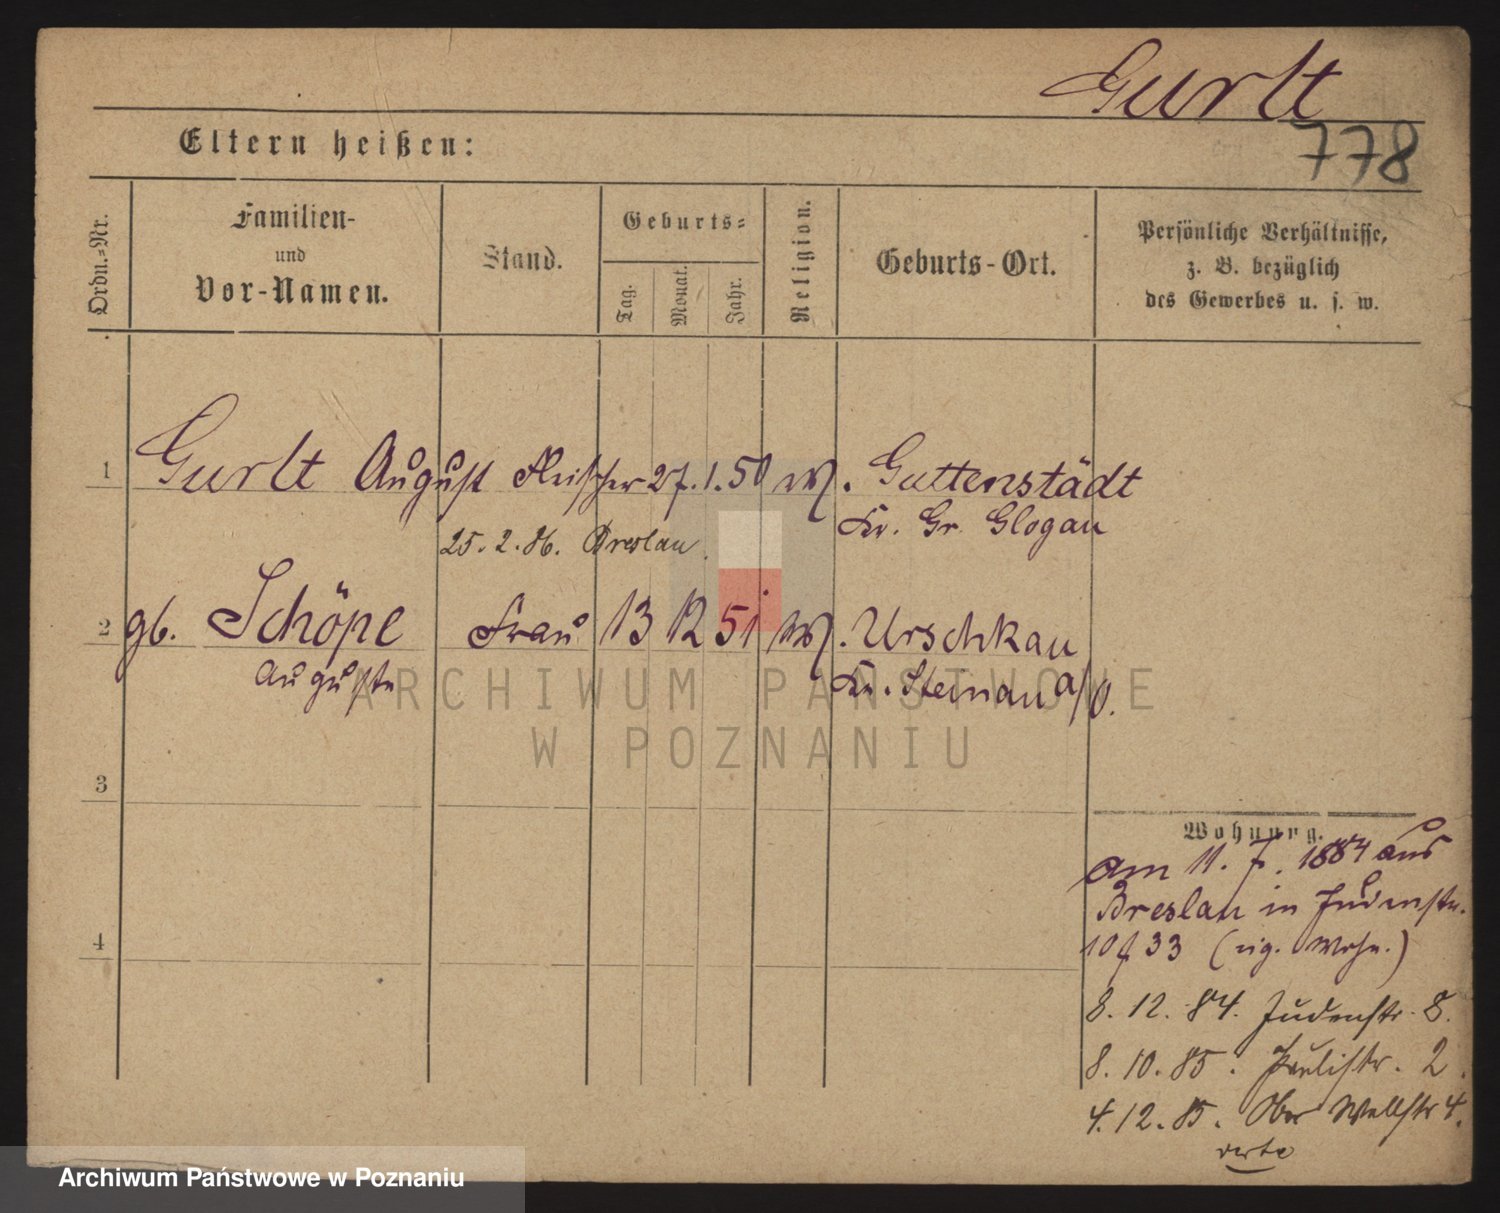 Gurlt
778
Eltern heißen:
Ordn.-Nr.
Familien-
und
Vor-Namen.
Stand.
Geburts-
Tag.
Monat.
Jahr.
Religion.
Geburts-Ort.
Persönliche Verhältnisse,
z. B. bezüglich
des Gewerbes u. s. w.
1 Gurlt August Fleischer 27. 1. 50 Guttenstädt
Kr. Gr. Glogau
25. 2. 86. Breslau.
2 gb. Schöpe Frau 13 12 51 Urschkau
Auguste Kr. Steinau a/O.
3
4
Wohnung.
am 11. 7. 1884 aus
Breslau in Judenstr.
33 (eig. Wohn.)
8. 12. 84. Judenstr. 8.
8. 10. 85. Paulistr. 2.
4. 12. 85. Ober Wallstr 4.
verte
ARCHIWUM PAŃSTWOWE
W POZNANIU
Archiwum Państwowe w Poznaniu